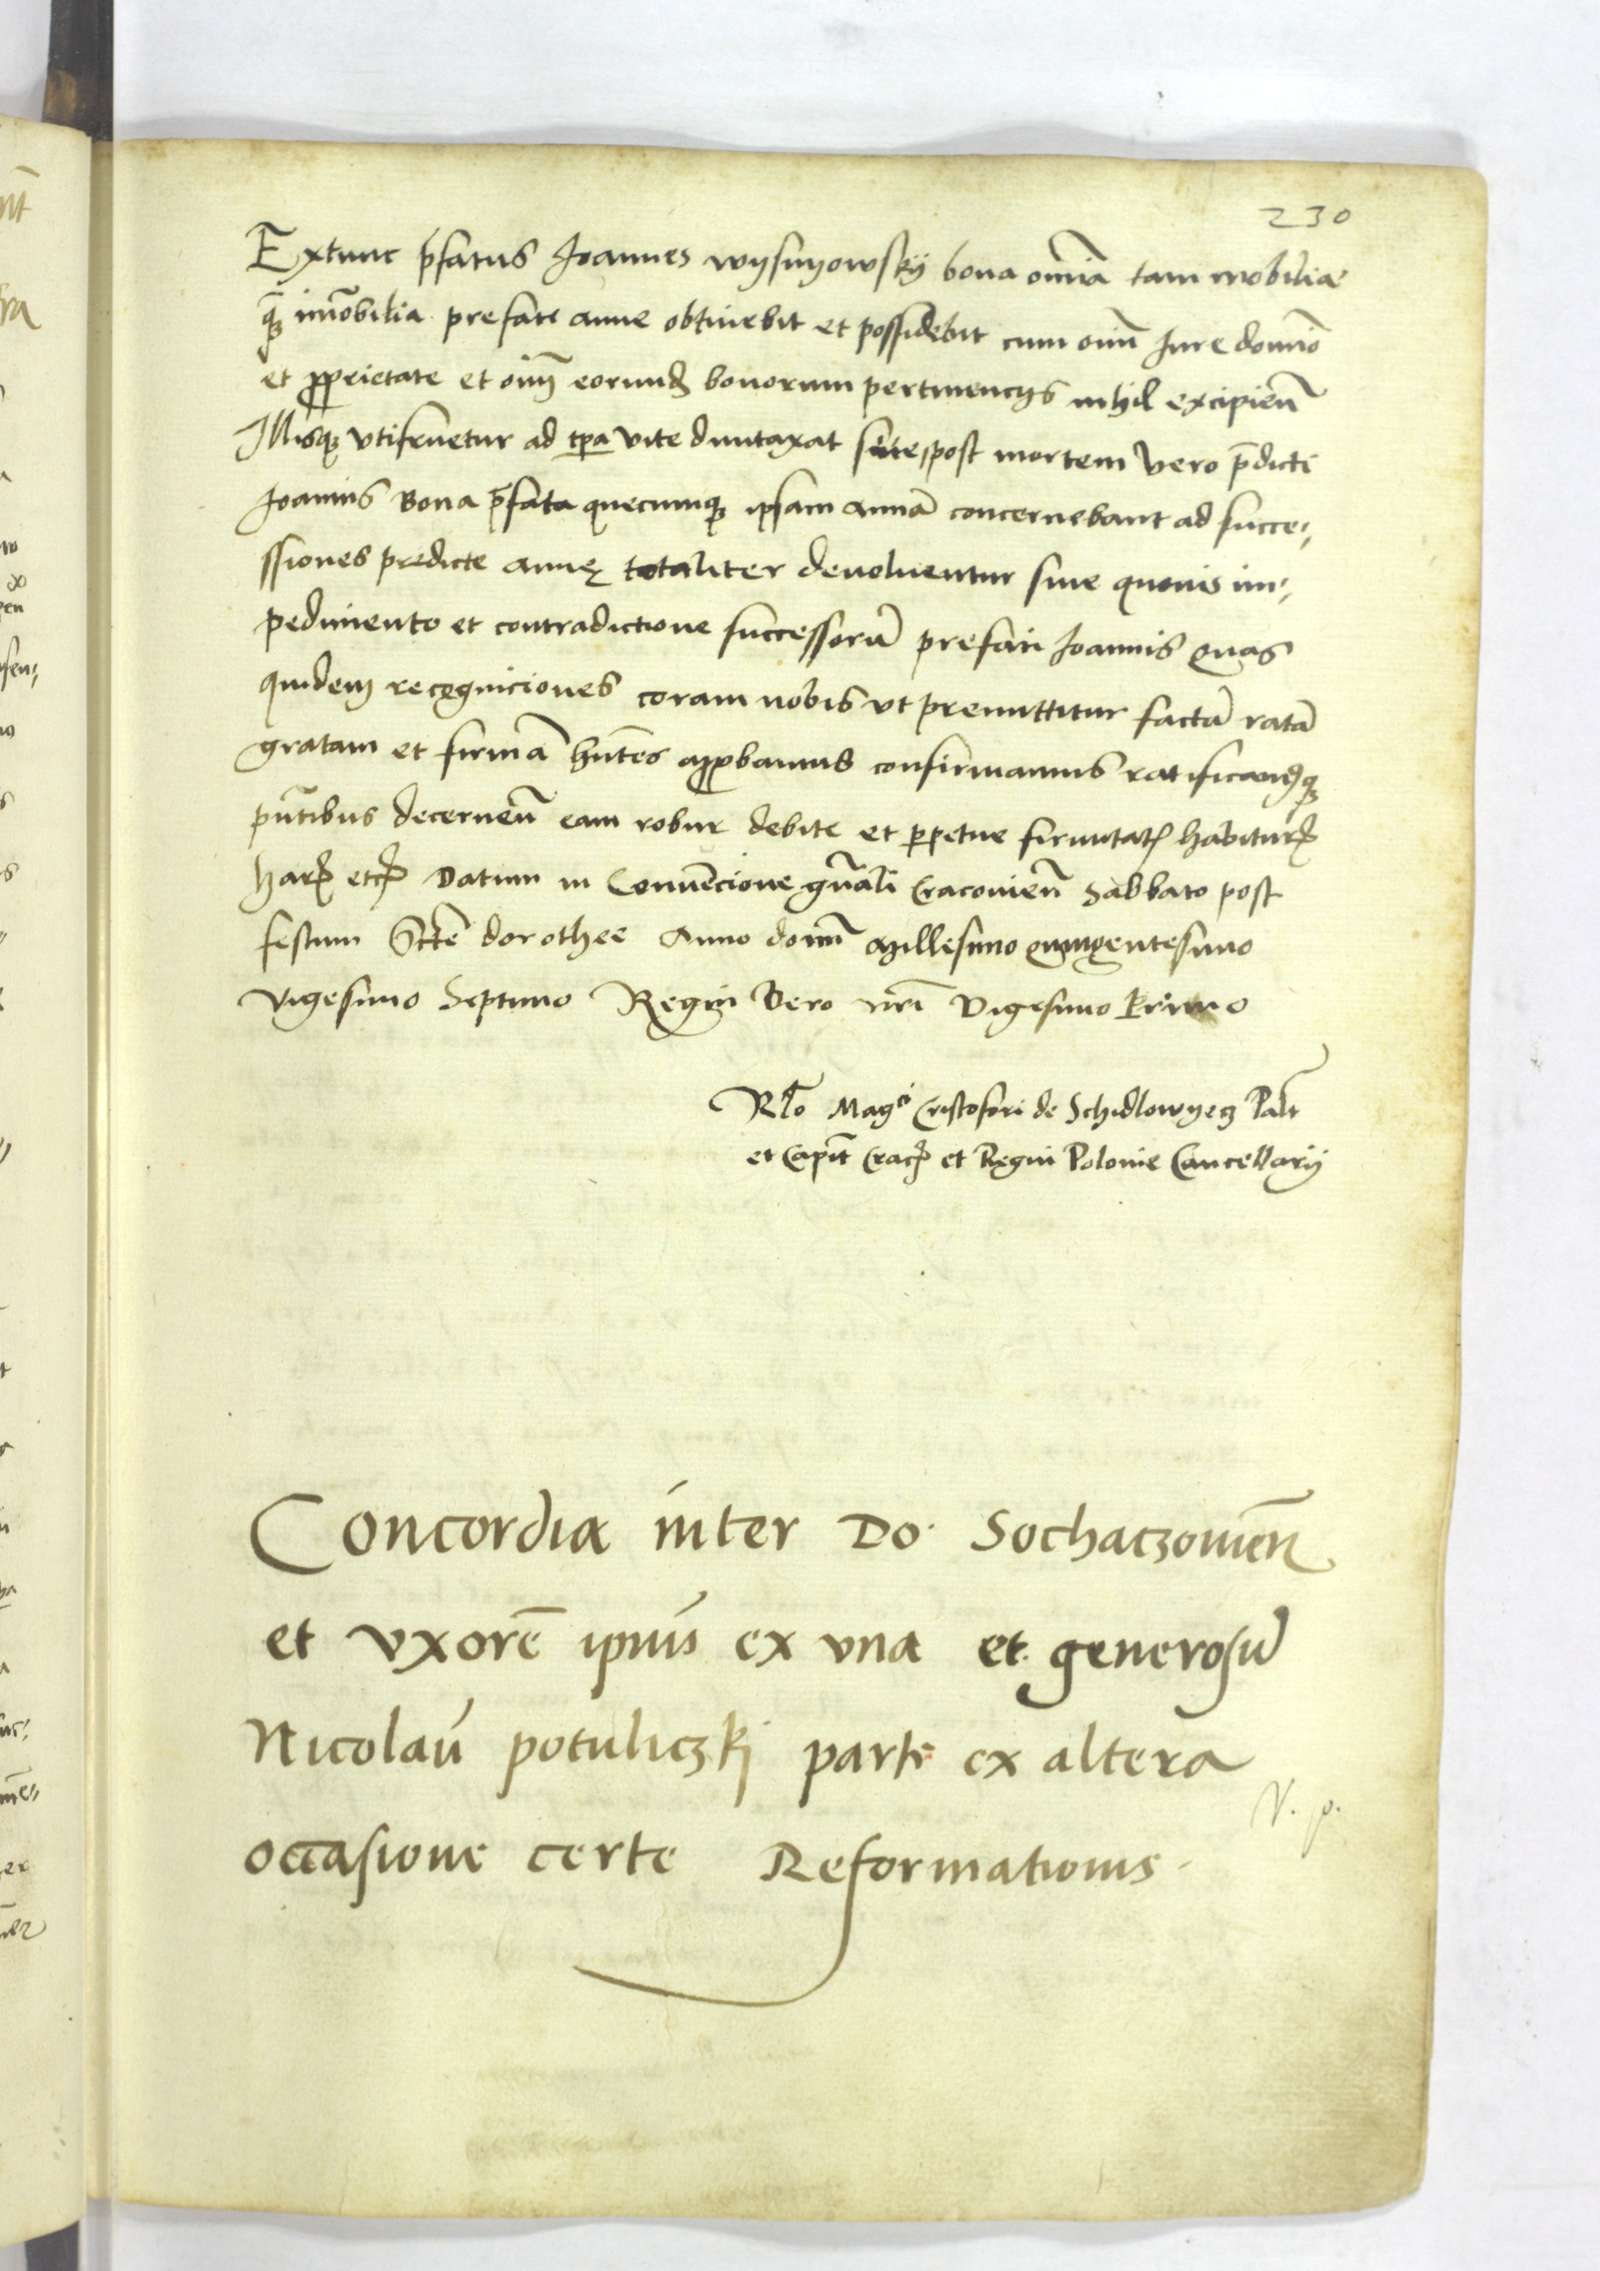 230
Extunc p̄fatus Joannes wysnyowsky bona om̄ia tam mobilia
q̄ȝ im̄obilia prefate anne obtinebit et possidebit cum om̄i Jure domīo
et proprietate et om̄i eorund bonorum pertinencys nihil excipien̄
Illisqȝ vtifruetur ad tp̄a vite duntaxat sue, post mortem vero p̄dicti
Joannis Bona p̄fata quecumqȝ ipsam annā concernebant ad succe-
ssiones predicte annę totaliter devoluentur sine quouis im-
pedimento et contradictione successorū prefati Joannis Quas
quidem recogniciones coram nobis vt premittitur factā ratā
gratam et firmā hn̄tes approbamus confirmamus ratificamusqȝ
pn̄tibus decernen̄ eam robur debite et perpetue firmitatis habiturā
harꝝ etcꝫ Datum in Conuēcione gn̄ali Cracouien̄ Sabbato post
festum Sc̄te dorothee Anno domī Millesimo quingentesimo
Vigesimo Septimo Regni Vero nr̄i Vigesimo Primo
Rl̄o Magci Cristoferi de Schidlowyecz Palt
et Capit̄ Cracꝫ et Regni Polonie Cancellarij
Concordia inter Do. Sochaczouien̄
et vxorē ipīus ex vna et generosū
Nicolaū potuliczkj parte ex altera
occasione certe Reformationis.
V. p.